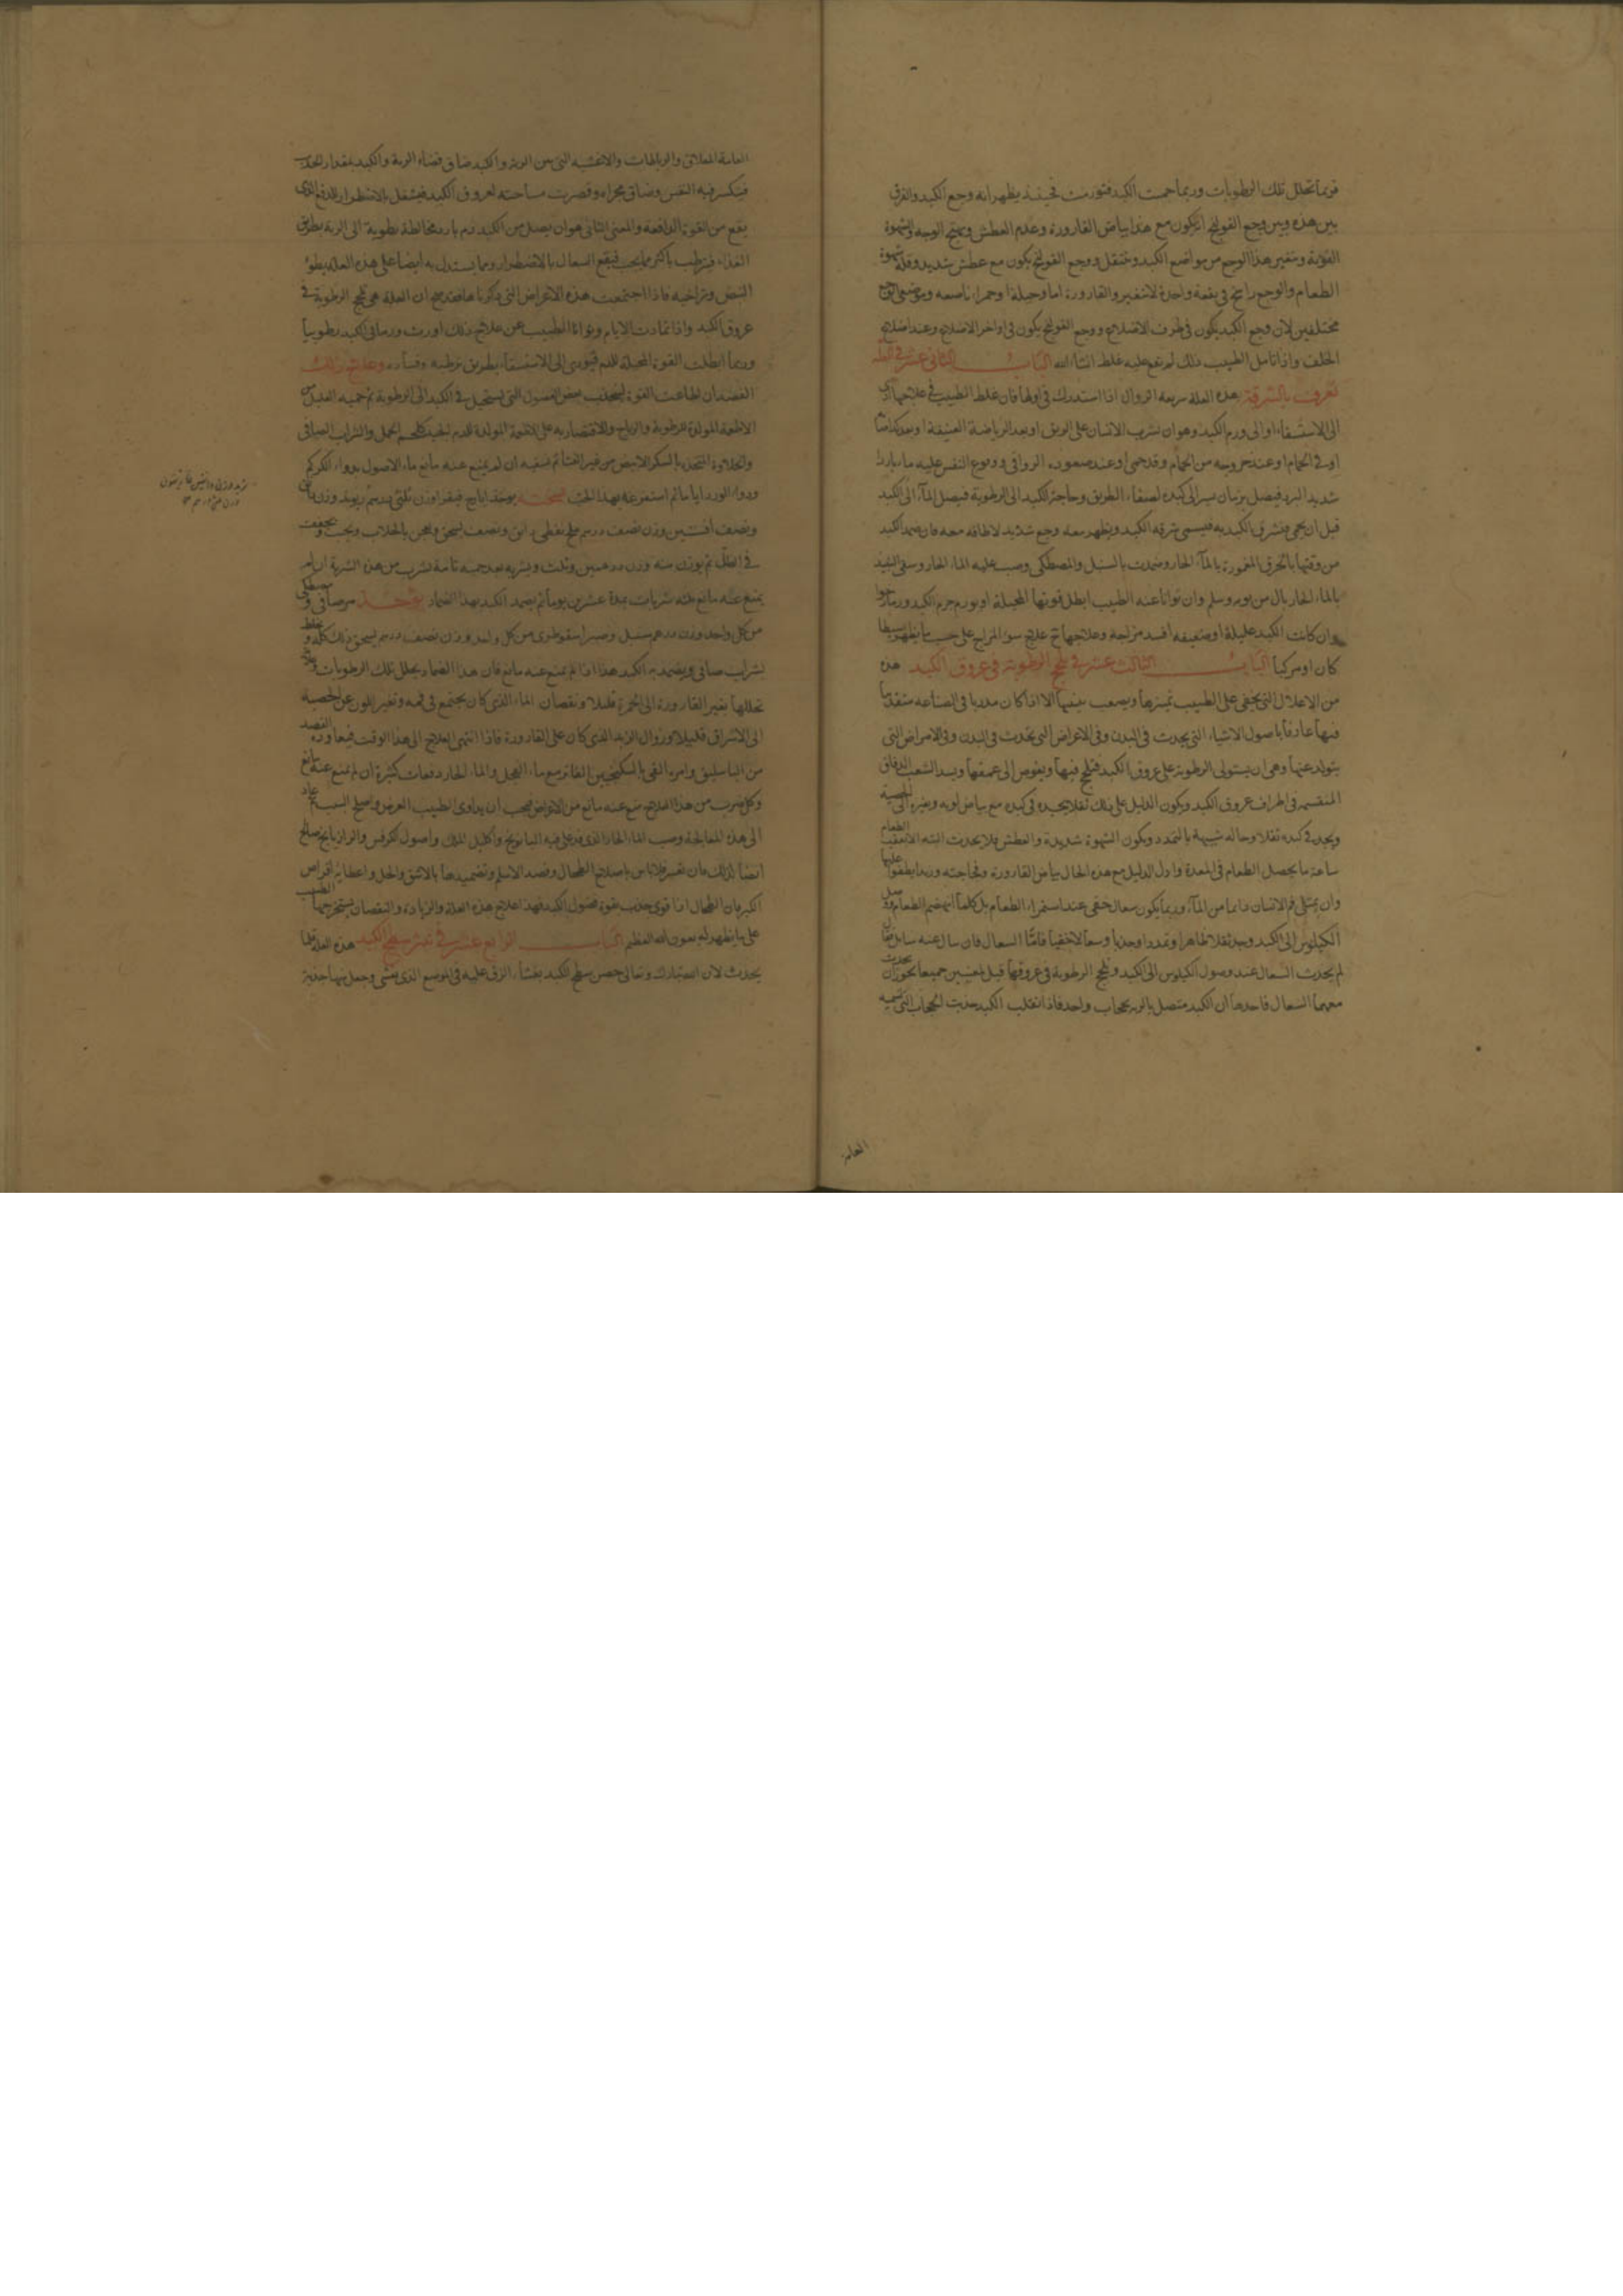 فربما تحلل تلك الرطوبات وربما حمت الكبد فتورمت فحينئذ يظهر انه وجع الكبد والفرق
بين هذه وبين وجع القولنج ان يكون مع هذا بياض القارورة وعدم العطش وتهيج الوجه والشهوة
القوية ومتغير هذا الوجع من مواضع الكبد وتنتقل ووجع القولنج يكون مع عطش شديد وقلة شهوة
الطعام والوجع راتج في بقعة واحدة لا تتغير والقارورة اما وجيلة او حمراء ناصعه وموضعي الوجع
مختلفين لان وجع الكبد يكون في طرف الاضلاع ووجع القولنج يكون في اواخر الاضلاع وعند اضلاع
الخلف واذا تامل الطبيب ذلك لم يقع عليه غلط انشاء الله الباب الثاني عشر في العلة
تعرف بالشرقة هذه العلة سريعة الزوال اذا استدرك في اولها فان غلط الطبيب في علاجها ادى
الى الاستسقاء او الى ورم الكبد وهو ان يشرب الانسان على الريق او بعد الرياضة العنيفة او بعد
او في الحمام او عند خروجه من الحمام وقد حمى او عند صعوده الروافي ووقوع النفس عليه ماء باردا
شديد البرد فيصل بزمان يسير الى كبده لصفاء الطريق وحاجة الكبد الى الرطوبة فيصل الماء الى الكبد
قبل ان يحمى فتشرق الكبد به فيسمى شرقة الكبد ويظهر معه وجع شديد لا طاقة معه فان ضمد الكبد
من وقتها بالخرق المغمورة بالماء الحار وضمدت بالسنبل والمصطكي وصب عليه الماء الحار وسقى النبيذ
بالماء الحار بال من يومه وسلم وان توانا عنه الطبيب ابطل قوتها المحيلة او تورم جرم الكبد وربما
وان كانت الكبد عليلة او ضعيفه افسد مزاجه وعلاجها علاج سوء المزاج على حسب ما يظهر بسيطا
كان او مركبا الباب الثالث عشر في لحج الرطوبة في عروق الكبد هذه
من الاعلال التي يخفى على الطبيب تميزها ويصعب عليه الا اذا كان مدربا في الصناعه متقدما
فيها عارفا باصول الاشياء التي يحدث في البدن وفي الاعراض التي تحدث في البدن وفي الامراض التي
يتولد عنها وهي ان يستولى الرطوبة على عروق الكبد فتلحج فيها ويغوص الى عمقها ويسد الشعب الدقاق
المنقسمة في اطراف عروق الكبد ويكون الدليل على ذلك ثقلا يجده في كبده مع بياض لونه وتغيره الى الجصية
ويجد في كبده ثقلا وحاله شبيهة بالتمدد ويكون الشهوة شديدة والعطش فلا يحدث البته الا بعقب الطعام
ساعة ما يحصل الطعام في المعدة وادل الدليل مع هذه الحال بياض القارورة وفجاجته وربما يطفوا عليها
وان يمتلي فم الانسان دايما من الماء وربما يكون سعال خفي عند استمراء الطعام بل كلما انهضم الطعام
الكيلوس الى الكبد وجد ثقلا ظاهرا وتمددا وجذبا وسعالا خفيا فاما السعال فان سال عنه سايل فقال
لم يحدث السعال عند وصول الكيلوس الى الكبد ولحج الرطوبة في عروقها قيل لمعنيين جميعا يجوز ان يحدث
معهما السعال فاحدهما ان الكبد متصل بالرئة بحجاب واحد فاذا انقلب الكبد جذبت الحجاب التي تسميه
العامة
العامة المعلاق والرباطات والاغشية التي بين الرئة والكبد ضاق فضاء الرئة والكبد بمقدار الجذب
فينكسر فيه النفس وضاق مجراه وقصرت مساحته لعروق الكبد فيشغل بالاضطرار للدفع الذي
يقع من القوة الدافعة والمعنى الثاني هو ان يصل من الكبد دم بارد مخالطه رطوبة الى الرئة بطريق
الغذاء فيرطب باكثر مما يجب فيقع السعال بالاضطرار ومما يستدل به ايضا على هذه العلة بطو
النبض وتراخيه فاذا اجتمعت هذه الاعراض التي ذكرناها فقد صح ان العلة هي لحج الرطوبة في
عروق الكبد واذا تمادت الايام وتوانا الطبيب عن علاج ذلك اورث ورما في الكبد رطوبيا
وربما ابطلت القوة المحيلة للدم فيودى الى الاستسقاء بطريق ترطبه وفساده وعلاج ذلك
الفصد ان طاعت القوة ليجذب بعض الفضول التي تستحيل في الكبد الى الرطوبة ثم حميه العليل من
الاطعمة المولدة للرطوبة والرياح والاقتصار به على الاطعمة المولدة للدم الجيد كلحم الحمل والشراب الصافي
والحلاوة المتخذ بالسكر الابيض من غير النشا ثم تسقيه ان لم يمنع عنه مانع ماء الاصول بدواء الكركم
ودواء الورد اياما ثم استفرغه بهذا الحب نسخته يوخذ ايارج فيقرا وزن ثلثي درهم تربد وزن دانق
ونصف افسنتين وزن نصف درهم ملح نفطي دانق ونصف يسحق ويعجن بالجلاب ويحبب ويجفف
في الظل ثم يوزن منه وزن درهمين وثلث ويشربه بعد حميه تامة يشرب من هذه الشربة ان لم
يمنع عنه مانع ثلثه شربات بمدة عشرين يوما ثم يضمد الكبد بهذا الضماد نسخته مر صافي ومصطكي
من كل واحد وزن درهم سنبل وصبر اسقوطري من كل واحد وزن نصف درهم يسحق ذلك كله ويخلط
بشراب صافي ويضمد به الكبد هذا اذا لم يمنع عنه مانع فان هذا الضماد يحلل تلك الرطوبات
تحللها بغير القارورة الى الحمرة قليلا ونقصان الماء الذي كان يجتمع في فمه وتغير اللون عن الجصية
الى الاشراق قليلا وزوال الزبد الذي كان على القارورة فاذا انتهى العلاج الى هذا الوقت فمعاودة الفصد
من الباسليق وامره القى بالسكنجبين الفاتر مع ماء الفجل والماء الحار دفعات كثيرة ان لم يمنع عنه مانع
وكل ضرب من هذا العلاج منع عنه مانع من الاعراض فيجب ان يداوى الطبيب العرض واصلح السبب ثم عاد
الى هذه المعالجة وصب الماء الحار الذي قد غلي فيه البابونج واكليل الملك واصول الكرفس والرازيانج صالح
ايضا لذلك فان تغير فلا باس باصلاح الطحال وفصد الاسلم وتضميدها بالاشق والخل واعطائه اقراص
الكبر فان الطحال اذا قوى جذب بقوة فضول الكبد فهذا علاج هذه العلة والزيادة والنقصان يستخرجها الطبيب
على ما يظهر له بعون الله العظيم الباب الرابع عشر في تبثر سطح الكبد هذه العلة قلما
يحدث لان الله تبارك وتعالى حصن سطح الكبد بغشاء الزق عليه في الموضع الذي يغشى وجعل بينهما